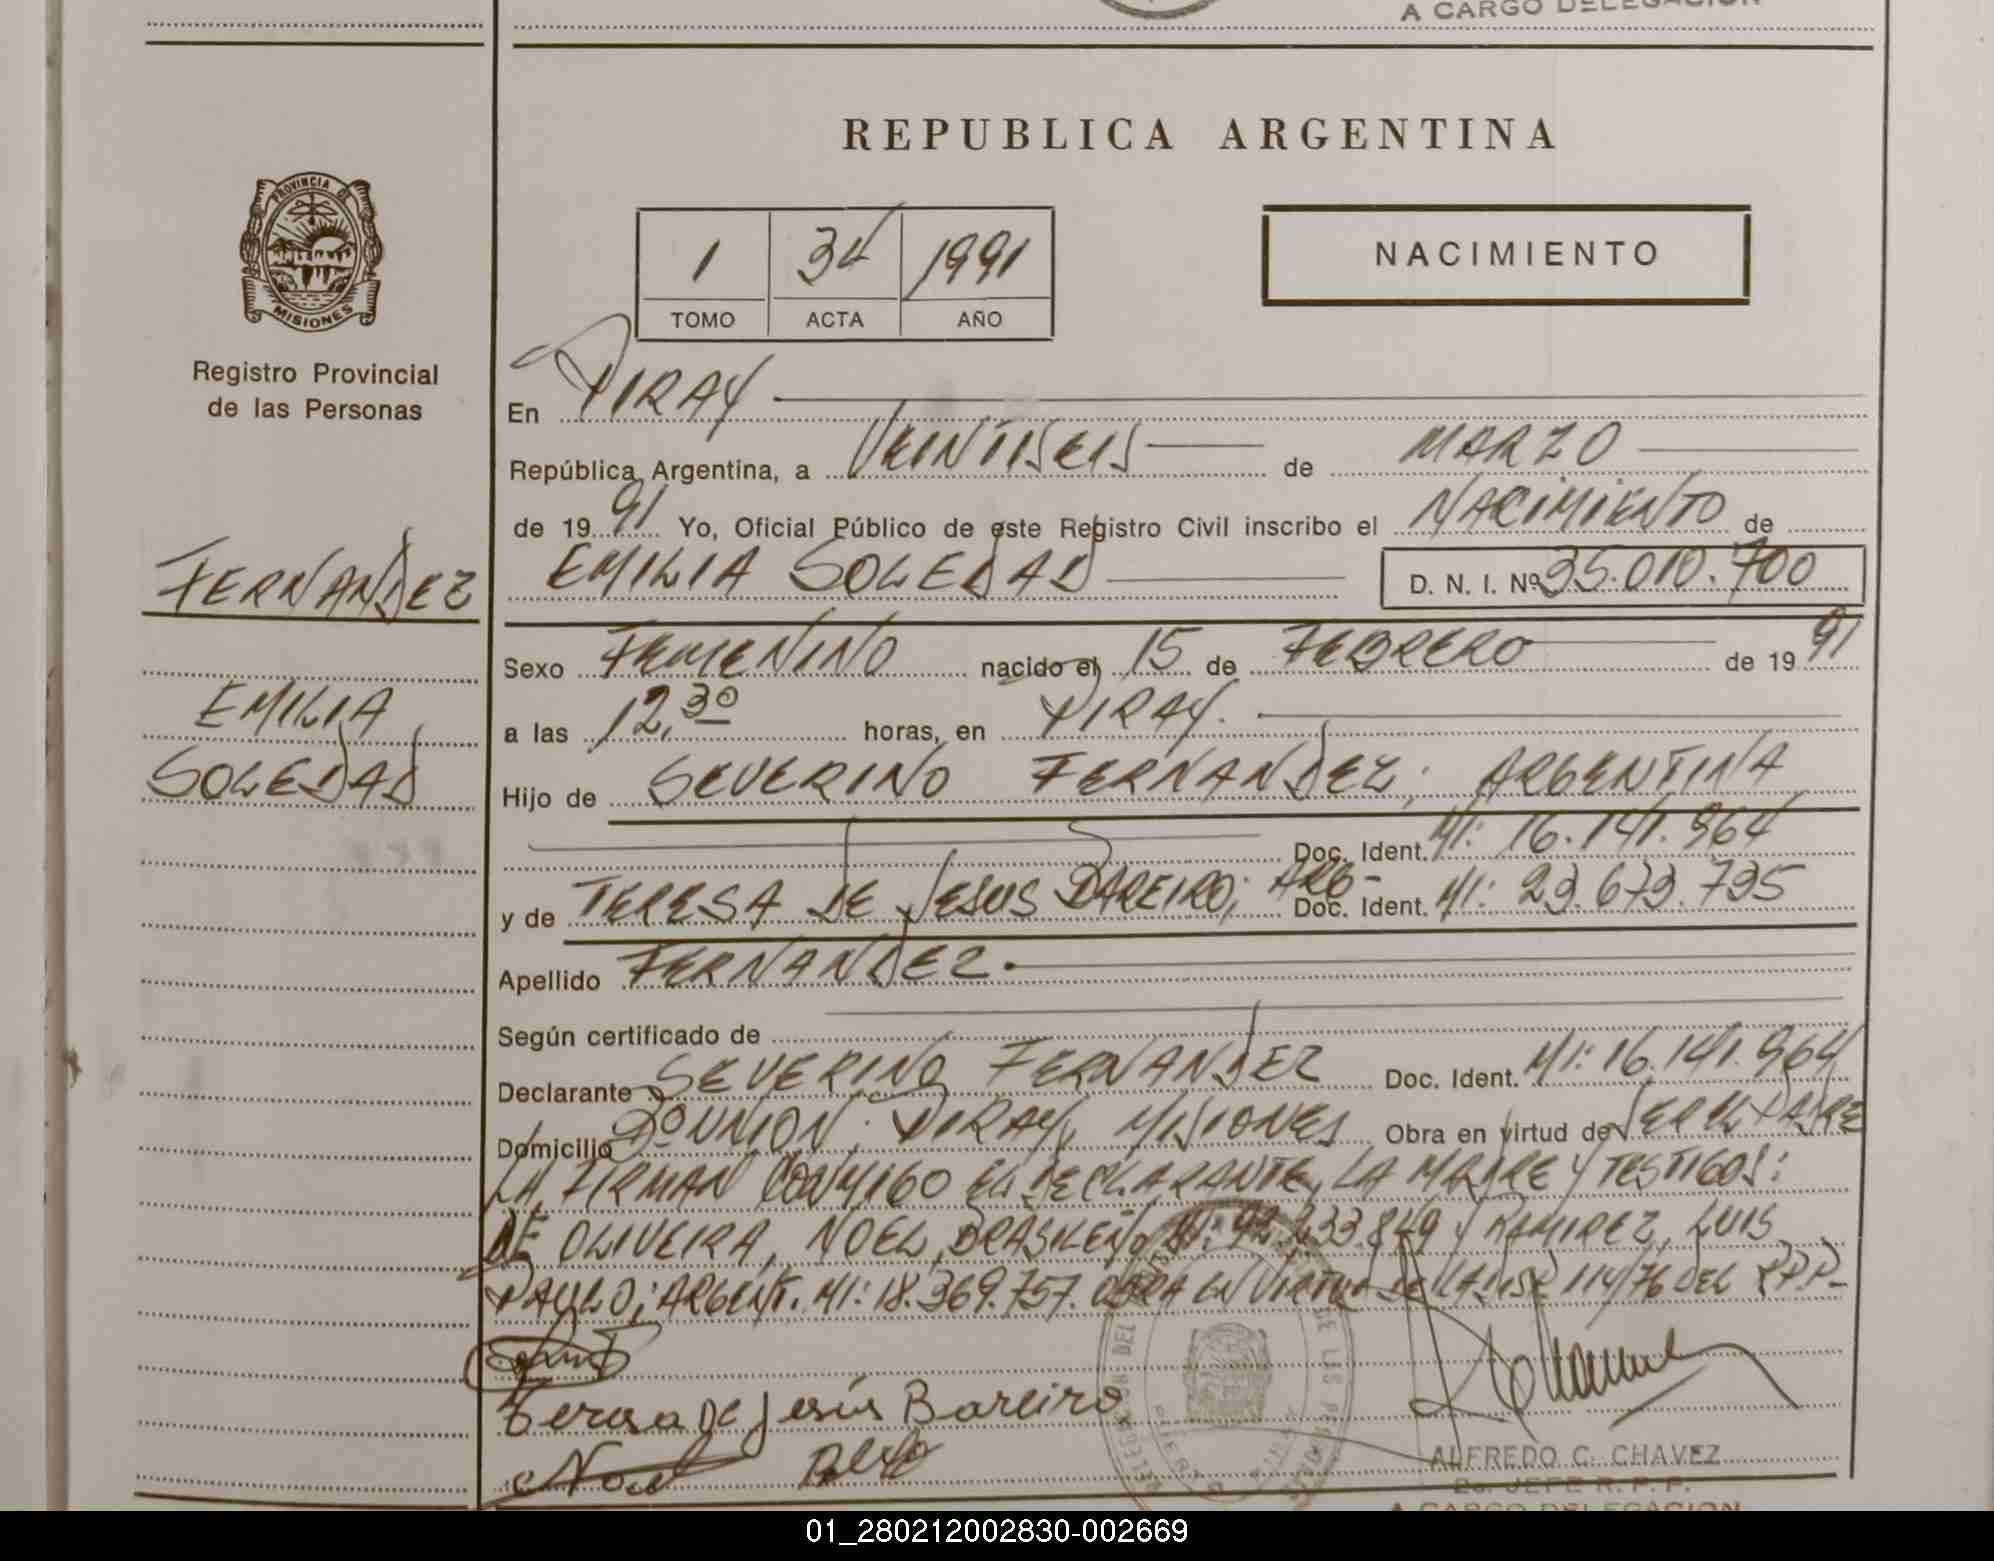 A CARGO DELEGACION
REPUBLICA ARGENTINA
PROVINCIA DE
MISIONES
1 34 1991
TOMO ACTA AÑO
NACIMIENTO
Registro Provincial
de las Personas
En PIRAY
República Argentina, a VEINTISEIS de MARZO
de 19 91 Yo, Oficial Público de este Registro Civil inscribo el NACIMIENTO de
FERNANDEZ
EMILIA SOLEDAD D. N. I. Nº 35.010.700
Sexo FEMENINO nacido el 15 de FEBRERO de 19 91
EMILIA
SOLEDAD
a las 12,30 horas, en PIRAY.
Hijo de SEVERINO FERNANDEZ; ARGENTINA
Doc. Ident. MI: 16.141.964
y de TERESA DE JESUS BAREIRO; ARG- Doc. Ident. MI: 23.673.735
Apellido FERNANDEZ.
Según certificado de
Declarante SEVERINO FERNANDEZ Doc. Ident. MI: 16.141.964
Domicilio Bº UNION; PIRAY, MISIONES Obra en virtud de SER EL PADRE
LA FIRMAN CONMIGO EL DECLARANTE, LA MADRE Y TESTIGOS:
DE OLIVEIRA, NOEL, BRASILEÑO, MI: 92.233.849 Y RAMIREZ, LUIS
PAULO; ARGENT. MI: 18.369.757. OBRA EN VIRTUD DE LA DISP. 114/76 DEL RPP-
Teresa De Jesús Bareiro
Noel
ALFREDO C. CHAVEZ
2o. JEFE R. P. P.
A CARGO DELEGACION
01_280212002830-002669